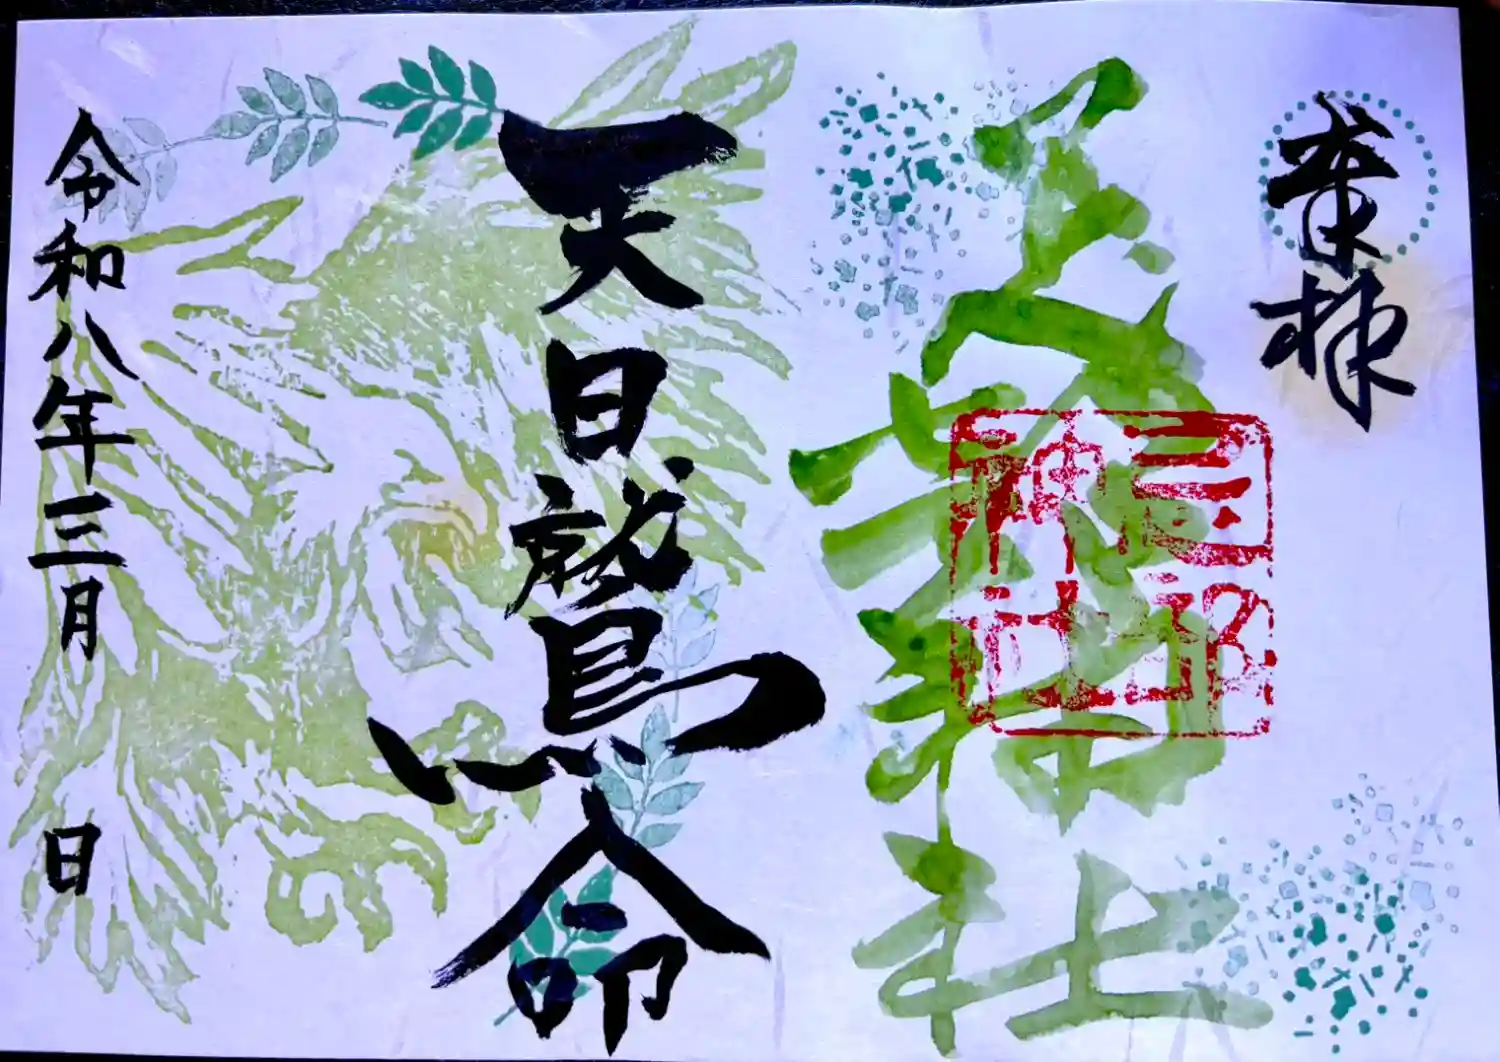 奉拝
神社
神社
天日鷲命
令和八年三月　日